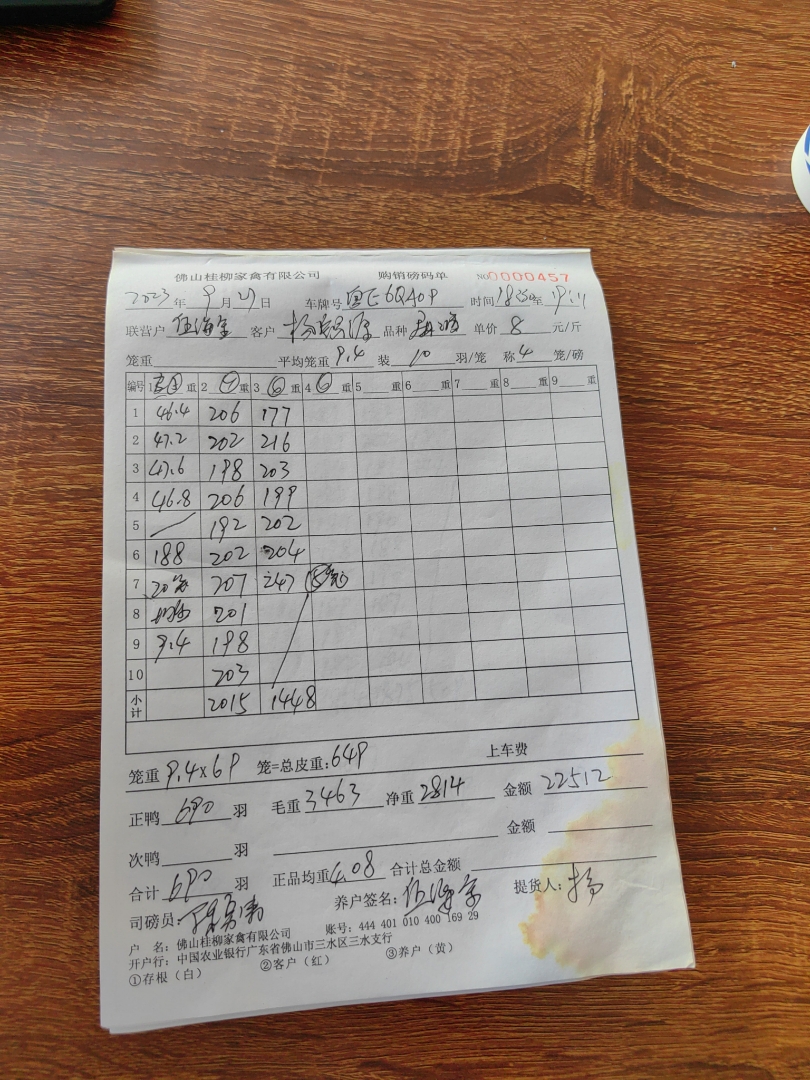 佛山桂柳家禽有限公司 购销磅码单 NO0000457
2023年9月21日 车牌号粤E6Q40P 时间 至
联营户 伍海宝 客户 杨 源 品种 单价 8 元/斤
笼重 平均笼重 9.4 装 10 羽/笼 称 4 笼/磅
编号 1 重 2 重 3 重 4 重 5 重 6 重 7 重 8 重 9 重
1 46.4 206 177
2 47.2 202 216
3 47.6 198 203
4 46.8 206 199
5 192 202
6 188 202 204
7 207 247
8 201
9 9.4 198
10 203
小计 2015 1448
笼重 9.4×69 笼=总皮重:649 上车费
正鸭 690 羽 毛重 3463 净重 2814 金额 22512
次鸭 羽 金额
合计 690 羽 正品均重 4.08 合计总金额
司磅员: 养户签名: 提货人: 杨
户 名: 佛山桂柳家禽有限公司 账号: 444 401 010 400 169 29
开户行: 中国农业银行广东省佛山市三水区三水支行
①存根(白) ②客户(红) ③养户(黄)